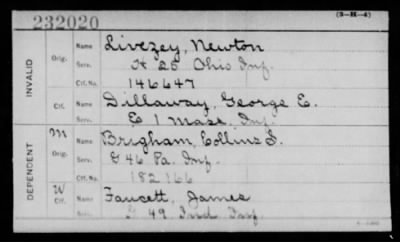 232020
(3-H-4)
INVALID
Orig.
Name Livezey, Newton
Serv. H 25 Ohio Inf.
Ctf. No. 146647
Ctf.
Name Dillaway, George E.
E 1 Mass. Inf.
DEPENDENT
M
Orig.
Name Brigham, Collins S.
Serv. G 46 Pa. Inf.
Ctf. No. 182166
W
Ctf.
Name Faucett, James
Serv. G 49 Ind Inf